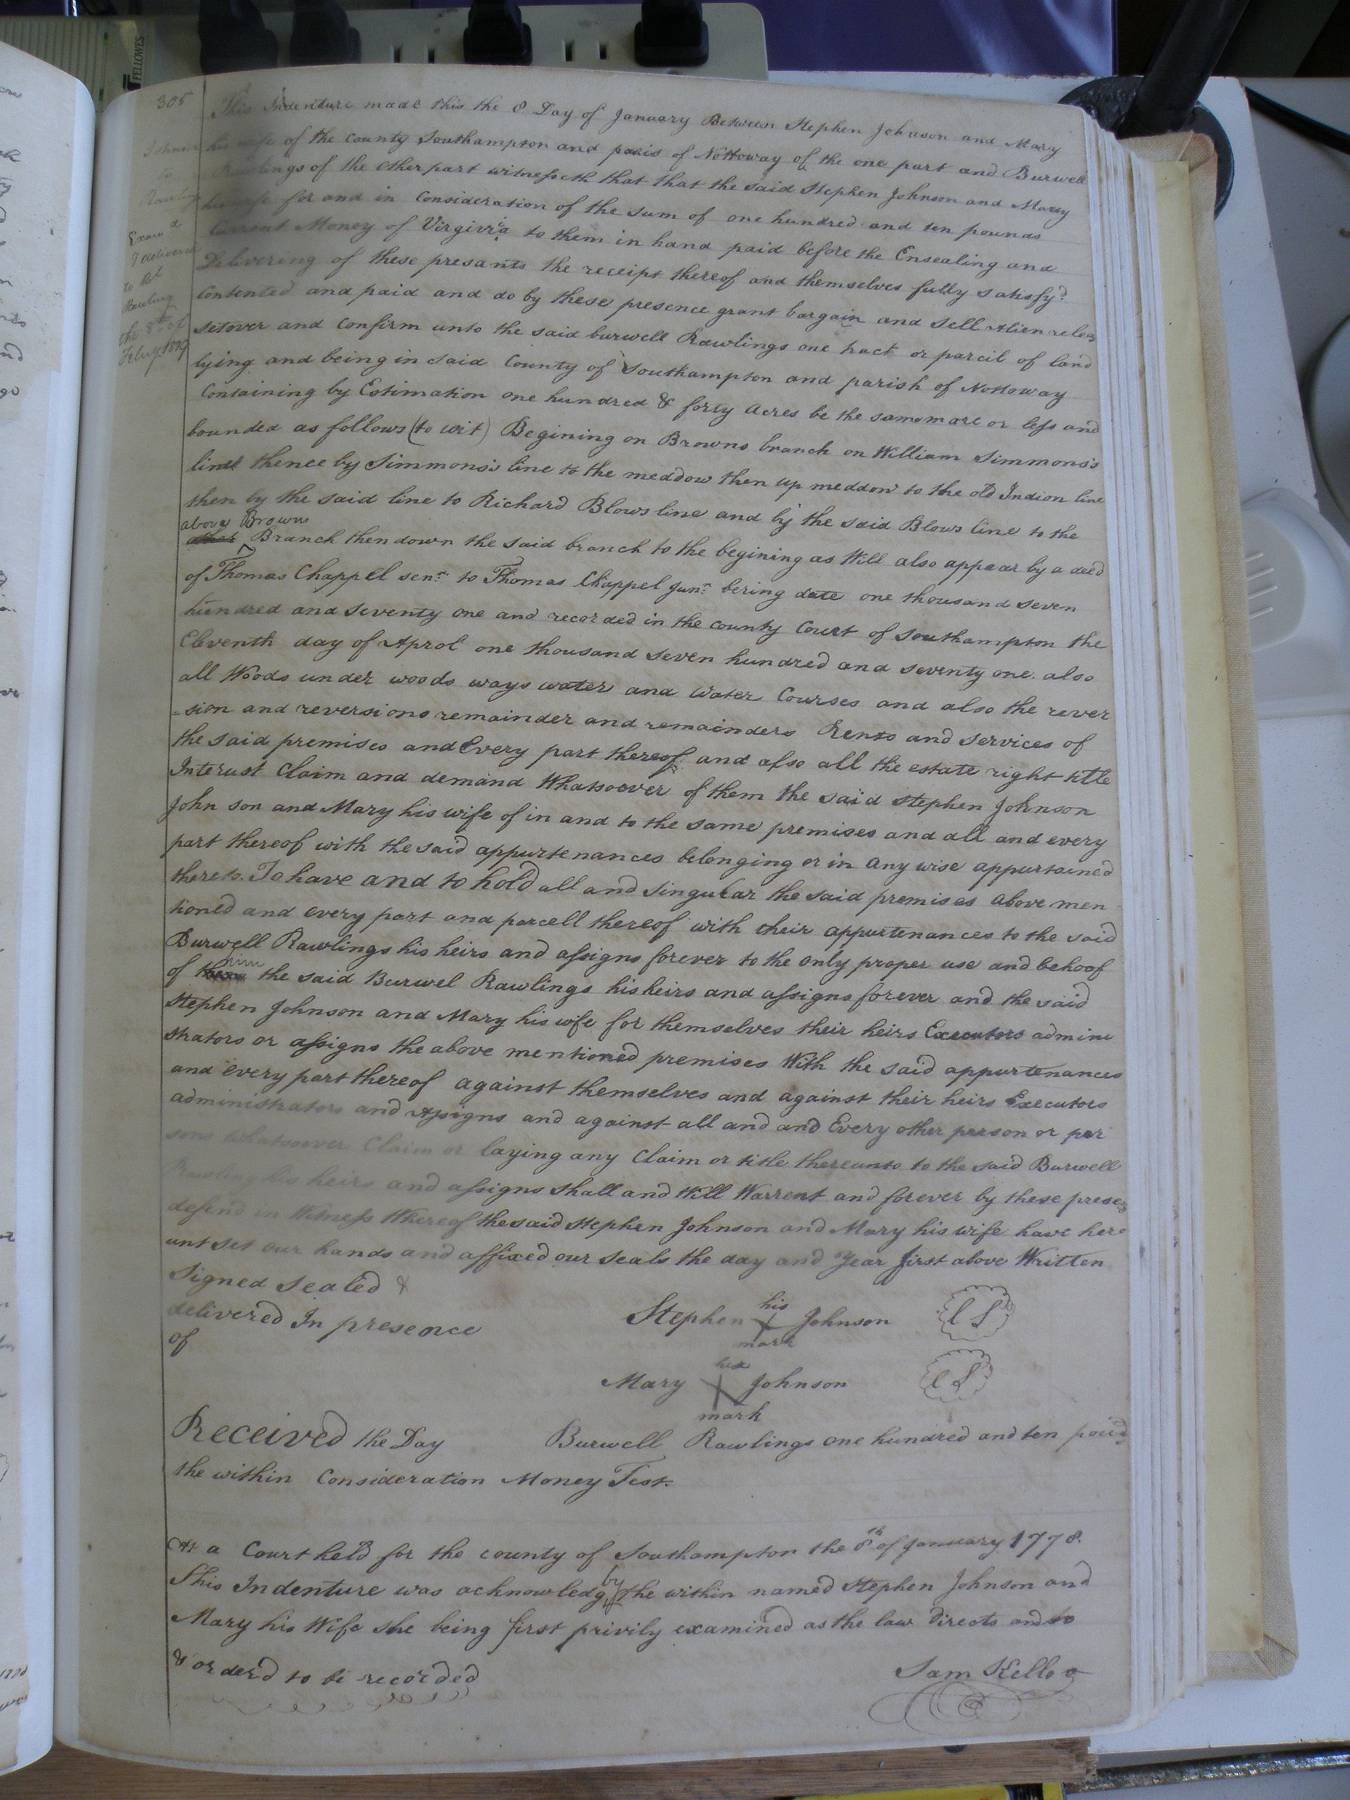 FELLOWES
305
This Indenture made this the 8 Day of January Between Stephen Johnson and Mary
his wife of the county Southampton and paris of Nottoway of the one part and Burwell
Rawlings of the other part witnesseth that that the said Stephen Johnson and Mary
his wife for and in Consideration of the sum of one hundred and ten pounds
Current Money of Virginia to them in hand paid before the Ensealing and
Delivering of these presants the receipt thereof and themselves fully satisfyd
Contented and paid and do by these presence grant bargain and sell Alien releas
setover and Confirm unto the said burwell Rawlings one tract or parcil of land
lying and being in said County of Southampton and parish of Nottoway
Containing by Estimation one hundred & forty acres be the same more or less and
bounded as follows (to wit) Begining on Browns branch on William Simmons's
line thence by Simmons's line to the meddow then up meddow to the old Indion line
then by the said line to Richard Blows line and by the said Blows line to the
above Browns
Branch then down the said branch to the begining as Will also appear by a deed
of Thomas Chappel senr to Thomas Chappel junr bering date one thousand seven
hundred and seventy one and recorded in the county Court of Southampton the
Eleventh day of Aprol one thousand seven hundred and seventy one also
all Woods under woods ways water and water Courses and also the rever
-sion and reversions remainder and remainders Rents and services of
the said premises and Every part thereof and also all the estate right title
Interust Claim and demand Whatsoever of them the said Stephen Johnson
John son and Mary his wife of in and to the same premises and all and every
part thereof with the said appurtenances belonging or in any wise appurtained
thereto To have and to hold all and singular the said premises above men
tioned and every part and parcell thereof with their appurtenances to the said
Burwell Rawlings his heirs and assigns forever to the only proper use and behoof
of him the said Burwel Rawlings his heirs and assigns forever and the said
Stephen Johnson and Mary his wife for themselves their heirs Executors admini
strators or assigns the above mentioned premises With the said appurtenances
and every part thereof against themselves and against their heirs Executors
administrators and Assigns and against all and and Every other person or per
sons Whatsoever Claim or laying any Claim or title thereunto to the said Burwell
Rawlings his heirs and assigns shall and Will Warrent and forever by these presen
defend in Witness Whereof the said Stephen Johnson and Mary his wife have here
unt set our hands and affixed our seals the day and year first above Written
Signed Sealed &
delivered In presence
of
Stephen his mark Johnson LS
Mary her mark Johnson LS
Received the Day Burwell Rawlings one hundred and ten pound
the within Consideration Money Test.
At a Court held for the county of Southampton the 8th of January 1778.
This Indenture was acknowledg by the within named Stephen Johnson and
Mary his Wife she being first privily examined as the law Directs and to
& orderd to be recorded
Sam Kello
Johnson
Examd
& delivered
to B
Rawling
the 8th of